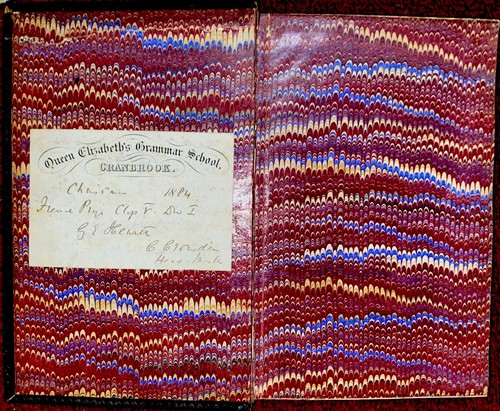 Queen Elizabeth's Grammar School,
CRANBROOK.
Christmas 1884
French Prize Class V. Div I
G E Hewett
C Crowden
Head Master